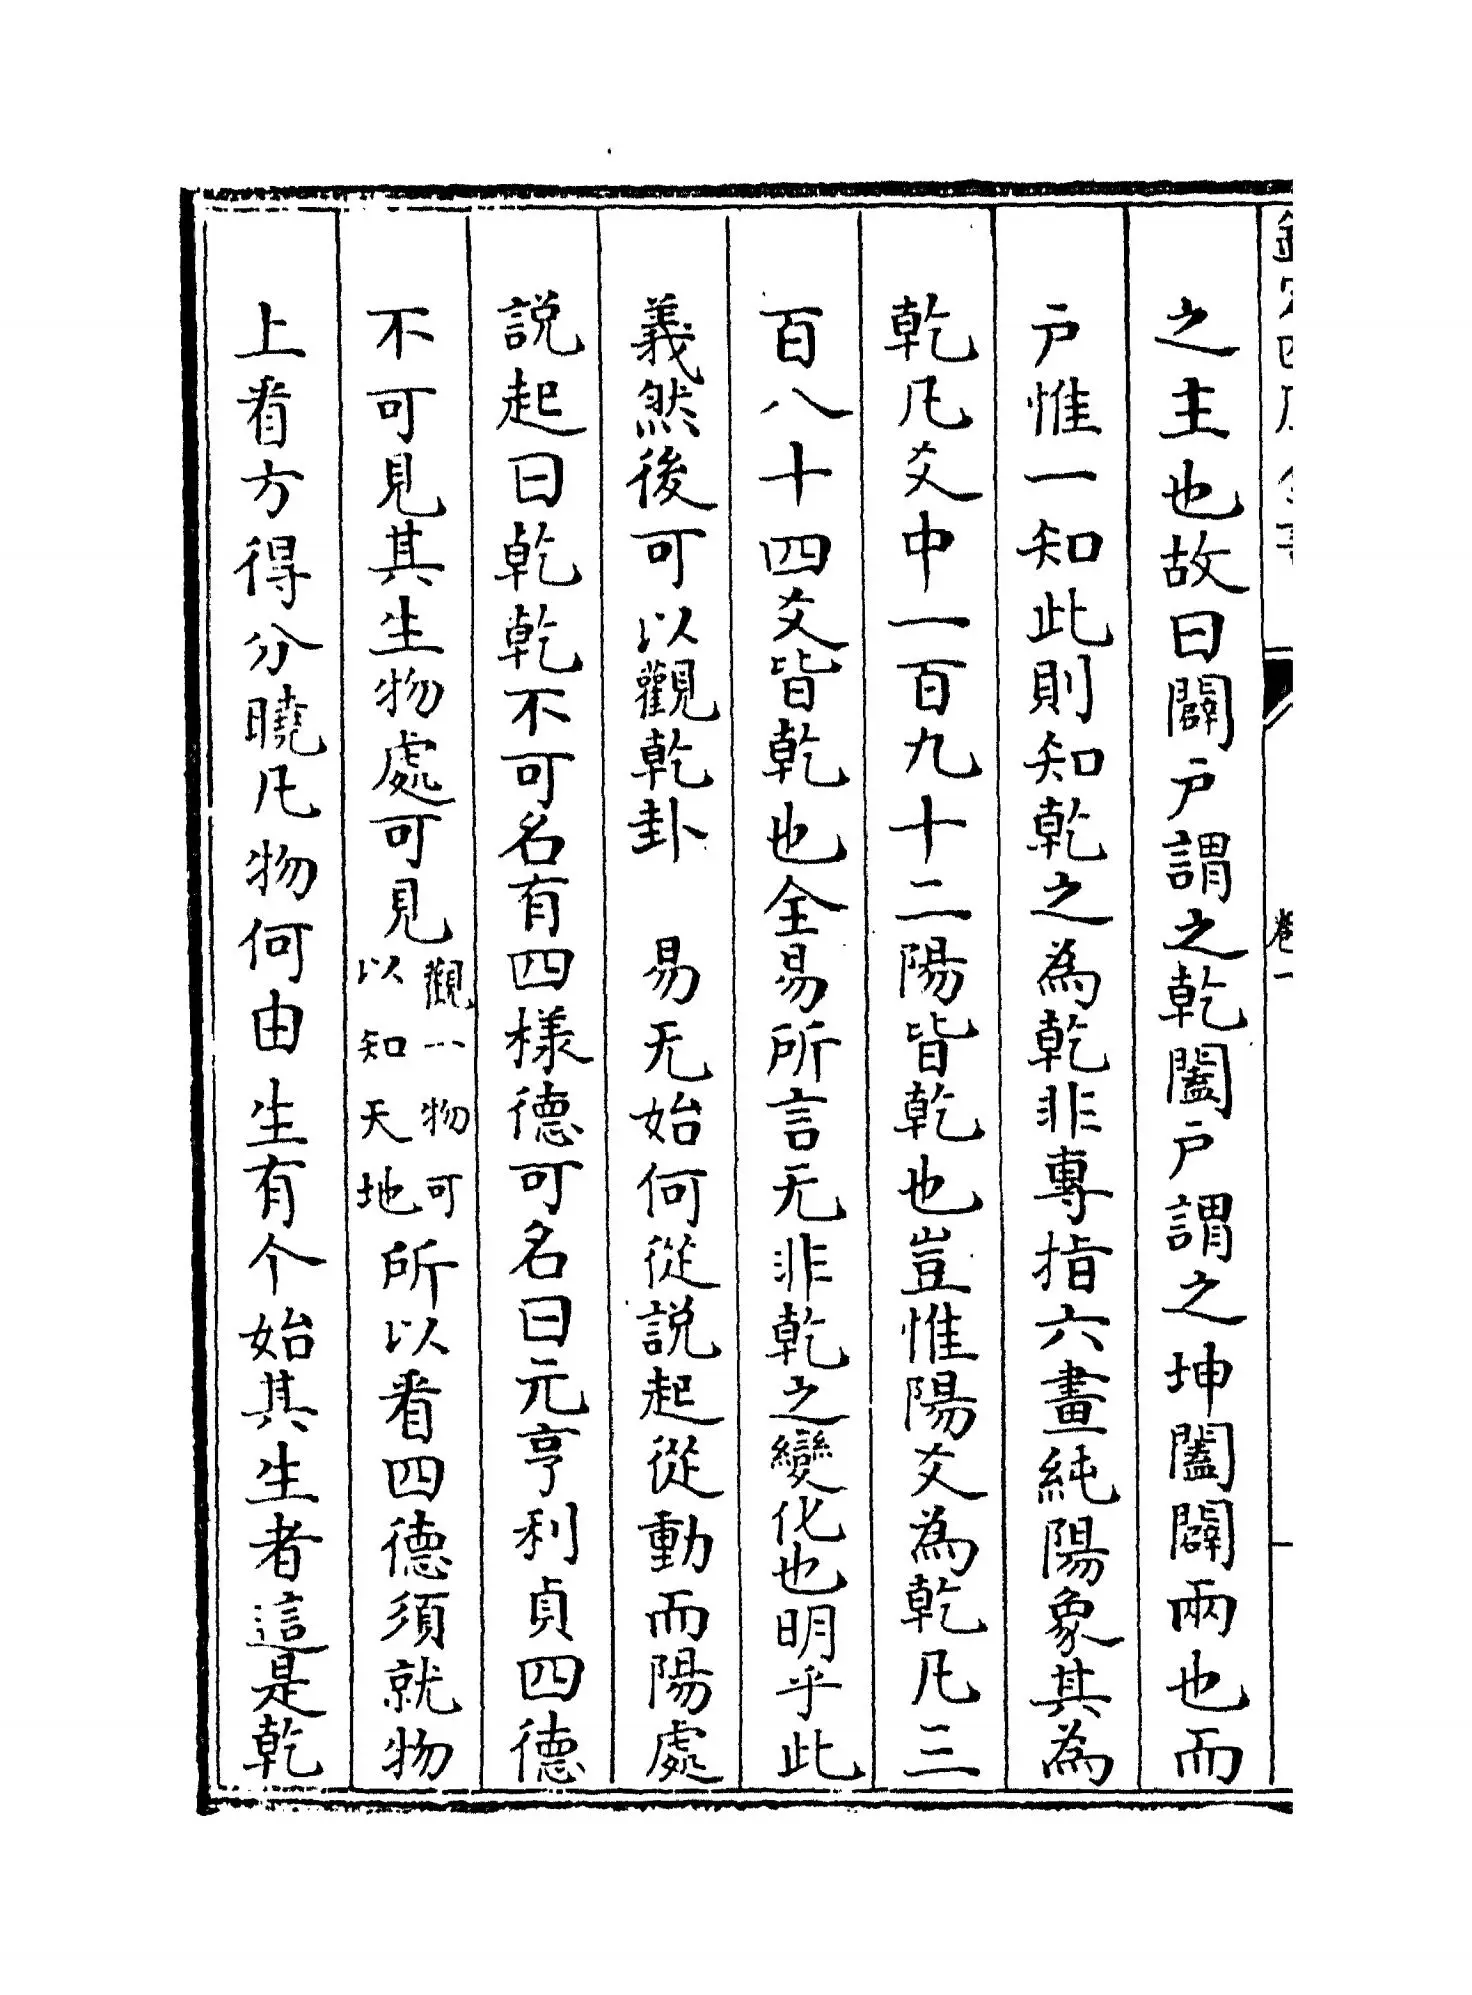 欽定四庫全書 卷一
之主也故曰闢戶謂之乾闔戶謂之坤闔闢兩也而
戶惟一知此則知乾之為乾非專指六畫純陽象其為
乾凡爻中一百九十二陽皆乾也豈惟陽爻為乾凡三
百八十四爻皆乾也全易所言无非乾之變化也明乎此
義然後可以觀乾卦 易无始何從説起從動而陽處
説起曰乾乾不可名有四樣德可名曰元亨利貞四德
不可見其生物處可見觀一物可以知天地所以看四德須就物
上看方得分曉凡物何由生有个始其生者這是乾